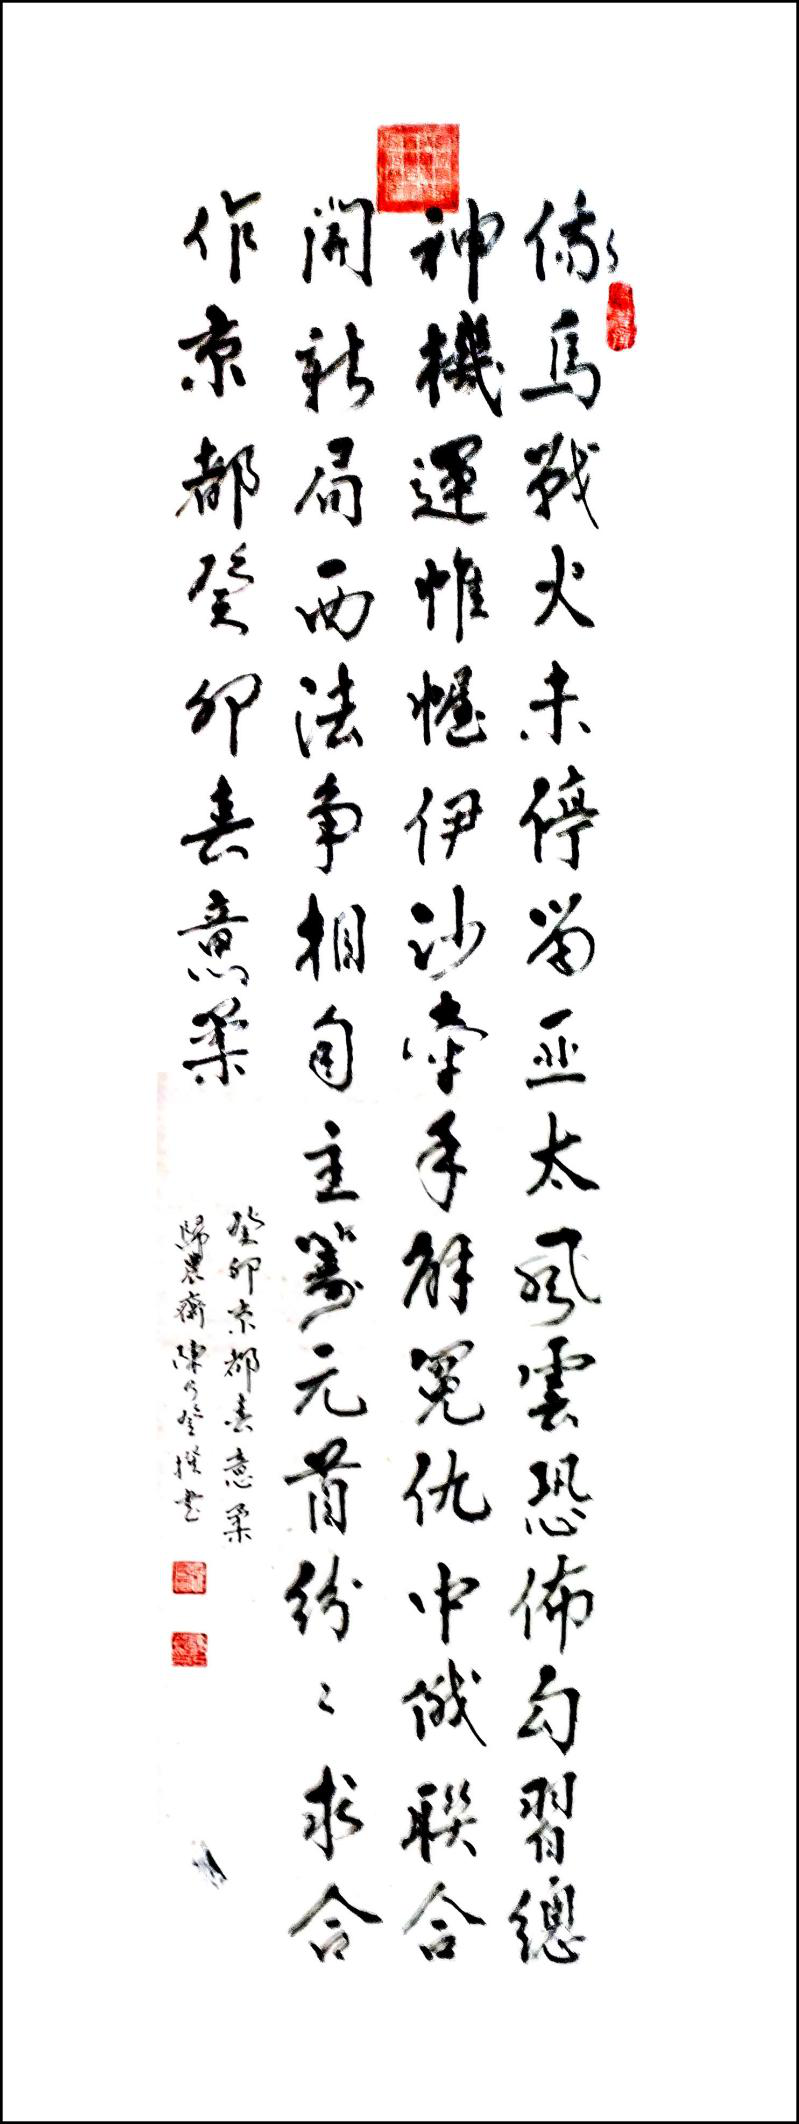 俄烏戰火未停留亞太風雲恐佈勾習總
神機運帷幄伊沙牽手解冤仇中俄聯合
開新局西法爭相自主籌元首紛〻求合
作京都癸卯春意柔
癸卯京都春意柔
歸農齋陳公登撰書